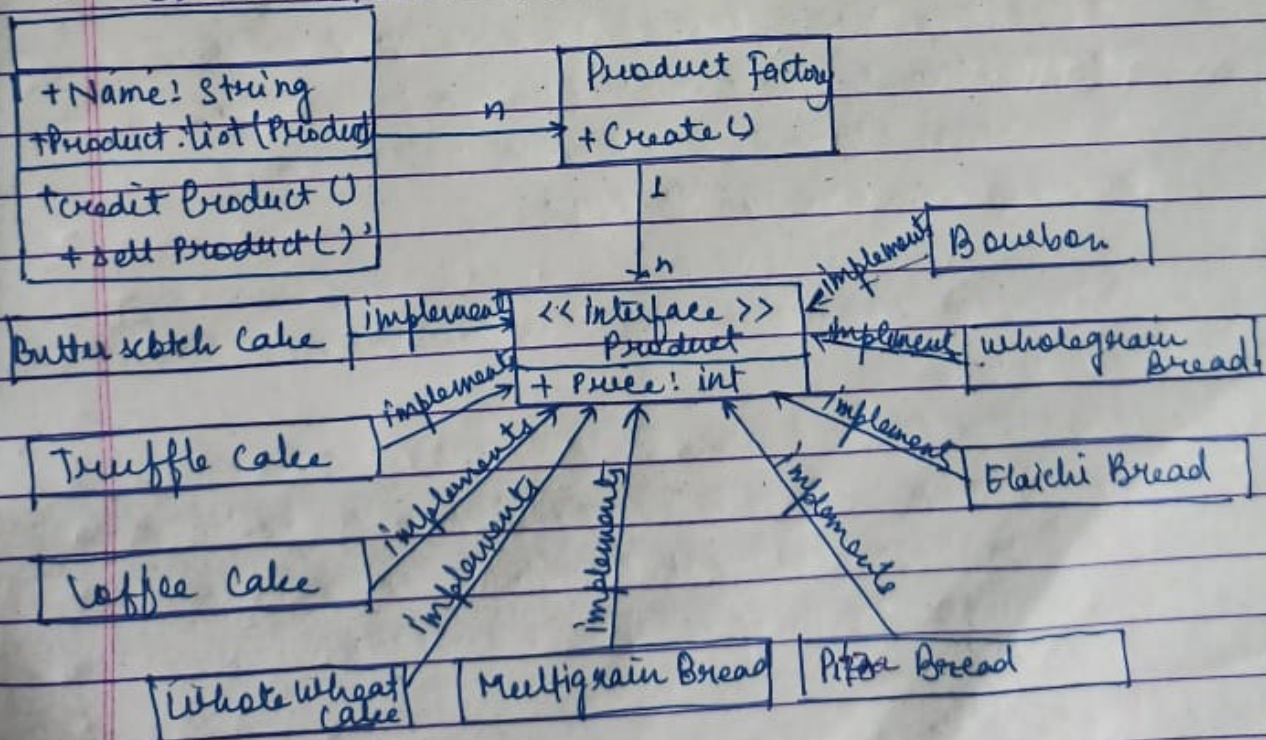 +Name: String
+Product:list(Product
+credit Product ()
+ sell Product()
n
Product Factory
+Create()
1
n
<< interface >>
Product
+ Price: int
Butter scotch Cake
implement
Truffle Cake
implement
Coffee Cake
implements
Whole Wheat
Cake
implements
Multigrain Bread
implements
Pizza Bread
implements
Elaichi Bread
implement
wholegrain
Bread
implement
Bourbon
implement